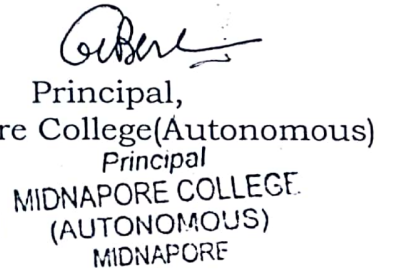 Principal,
re College(Autonomous)
Principal
MIDNAPORE COLLEGE
(AUTONOMOUS)
MIDNAPORE